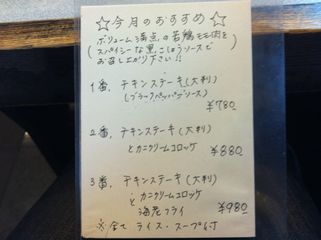 ☆今月のおすすめ☆
(ボリューム満点の若鶏モモ肉を
スパイシーな黒こしょうソースで
お召し上がり下さい!!)
1番. チキンステーキ(大判)
(ブラックペッパーソース)
¥780
2番. チキンステーキ(大判)
とカニクリームコロッケ
¥880
3番. チキンステーキ(大判)
とカニクリームコロッケ
海老フライ ¥980
※全て ライス・スープ付